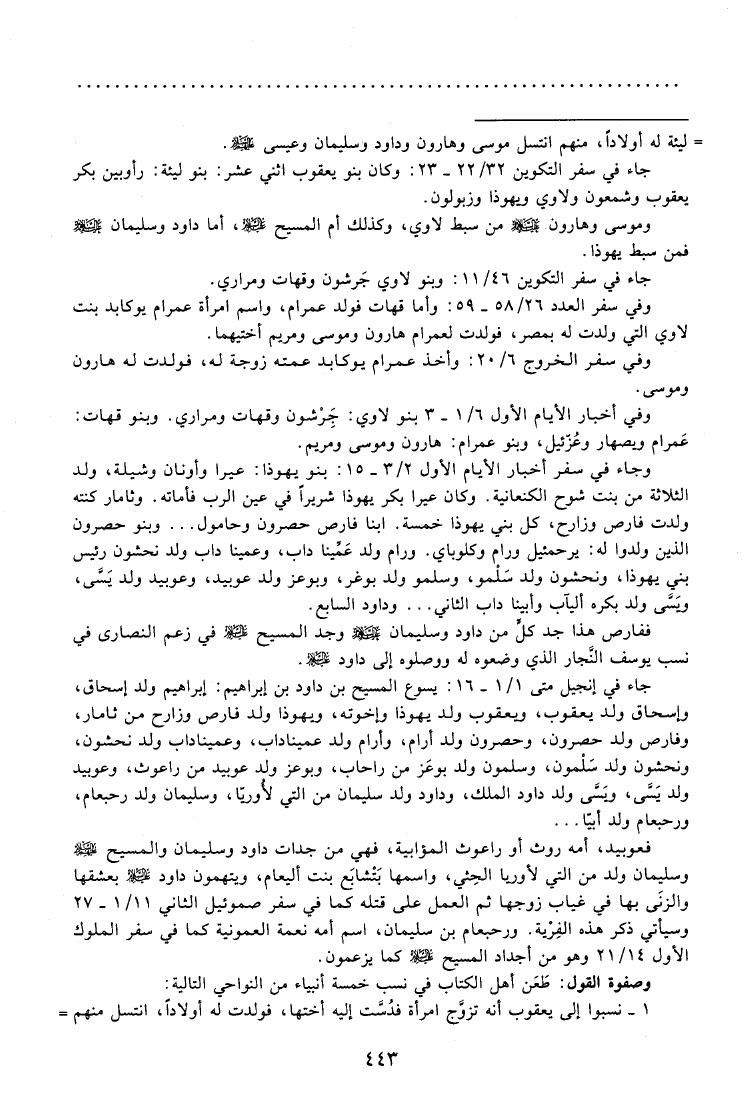 = ليئة له أولاداً، منهم انتسل موسى وهارون وداود وسليمان وعيسى ﷺ.
جاء في سفر التكوين ٢٢/٣٢ ـ ٢٣: وكان بنو يعقوب اثني عشر: بنو ليئة: رأوبين بكر
يعقوب وشمعون ولاوي ويهوذا وزبولون.
وموسى وهارون ﷺ من سبط لاوي، وكذلك أم المسيح ﷺ، أما داود وسليمان ﷺ
فمن سبط يهوذا.
جاء في سفر التكوين ١١/٤٦: وبنو لاوي جَرشون وقهات ومراري.
وفي سفر العدد ٥٨/٢٦ ـ ٥٩: وأما قهات فولد عمرام، واسم امرأة عمرام يوكابد بنت
لاوي التي ولدت له بمصر، فولدت لعمرام هارون وموسى ومريم أختيهما.
وفي سفر الخروج ٢٠/٦: وأخذ عمرام يوكابد عمته زوجة له، فولدت له هارون
وموسى.
وفي أخبار الأيام الأول ١/٦ ـ ٣ بنو لاوي: جَرْشون وقهات ومراري. وبنو قهات:
عَمرام ويصهار وعُزّئيل، وبنو عمرام: هارون وموسى ومريم.
وجاء في سفر أخبار الأيام الأول ٣/٢ ـ ١٥: بنو يهوذا: عيرا وأونان وشيلة، ولد
الثلاثة من بنت شوح الكنعانية. وكان عيرا بكر يهوذا شريراً في عين الرب فأماته. وثامار كنته
ولدت فارص وزارح، كل بني يهوذا خمسة. ابنا فارص حصرون وحامول... وبنو حصرون
الذين ولدوا له: يرحمئيل ورام وكلوباي. ورام ولد عَمِّينا داب، وعمينا داب ولد نحشون رئيس
بني يهوذا، ونحشون ولد سَلْمو، وسلمو ولد بوغر، وبوعز ولد عوبيد، وعوبيد ولد يَسَّى،
ويَسَّى ولد بكره أليآب وأبينا داب الثاني... وداود السابع.
ففارص هذا جد كلٍّ من داود وسليمان ﷺ وجد المسيح ﷺ في زعم النصارى في
نسب يوسف النَّجار الذي وضعوه له ووصلوه إلى داود ﷺ.
جاء في إنجيل متى ١/١ ـ ١٦: يسوع المسيح بن داود بن إبراهيم: إبراهيم ولد إسحاق،
وإسحاق ولد يعقوب، ويعقوب ولد يهوذا وإخوته، ويهوذا ولد فارص وزارح من ثامار،
وفارص ولد حصرون، وحصرون ولد أرام، وأرام ولد عميناداب، وعميناداب ولد نحشون،
ونحشون ولد سَلْمون، وسلمون ولد بوعَز من راحاب، وبوعز ولد عوبيد من راعوث، وعوبيد
ولد يَسَّى، ويَسَّى ولد داود الملك، وداود ولد سليمان من التي لأُوريّا، وسليمان ولد رحبعام،
ورحبعام ولد أبيّا...
فعوبيد، أمه روث أو راعوث المؤابية، فهي من جدات داود وسليمان والمسيح ﷺ
وسليمان ولد من التي لأوريا الحِثي، واسمها بَتْشابَع بنت أليعام، ويتهمون داود ﷺ بعشقها
والزنَى بها في غياب زوجها ثم العمل على قتله كما في سفر صموئيل الثاني ١/١١ ـ ٢٧
وسيأتي ذكر هذه الفِرْية. ورحبعام بن سليمان، اسم أمه نعمة العمونية كما في سفر الملوك
الأول ٢١/١٤ وهو من أجداد المسيح ﷺ كما يزعمون.
وصفوة القول: طَعَن أهل الكتاب في نسب خمسة أنبياء من النواحي التالية:
١ ـ نسبوا إلى يعقوب أنه تزوَّج امرأة فدُسَّت إليه أختها، فولدت له أولاداً، انتسل منهم =
٤٤٣